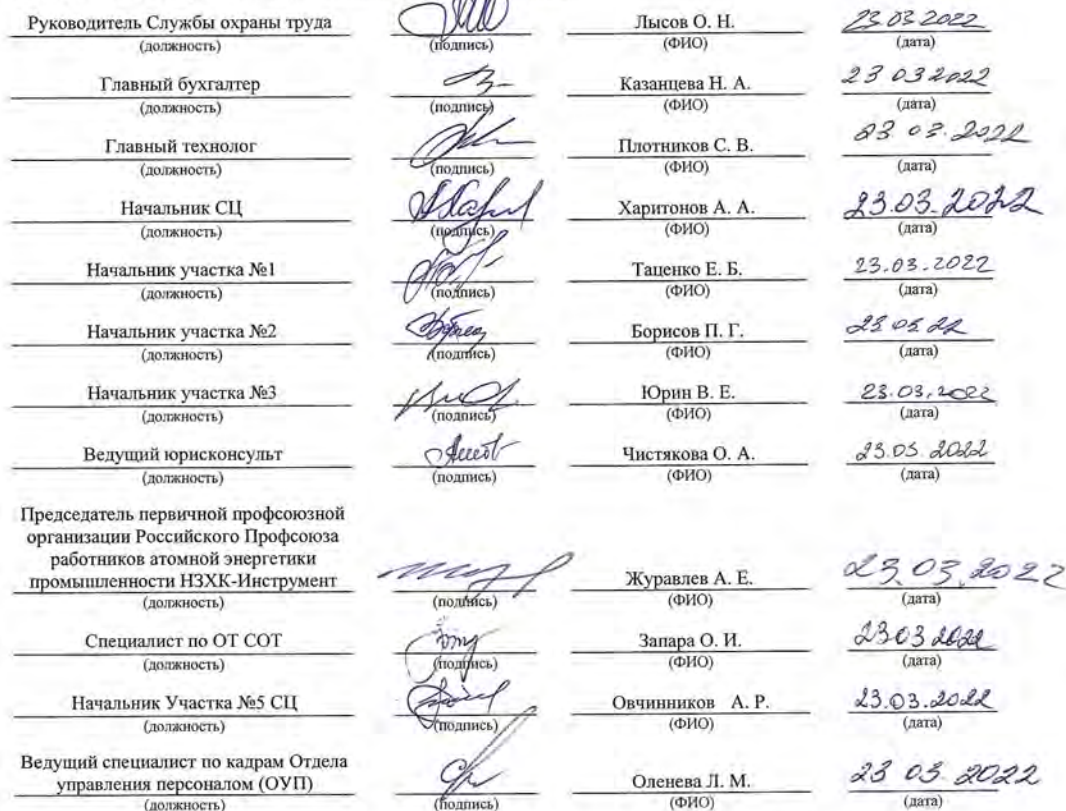 Руководитель Службы охраны труда Лысов О. Н. 23.03.2022
(должность) (подпись) (ФИО) (дата)
Главный бухгалтер Казанцева Н. А. 23 03 2022
(должность) (подпись) (ФИО) (дата)
Главный технолог Плотников С. В. 23.03.2022
(должность) (подпись) (ФИО) (дата)
Начальник СЦ Харитонов А. А. 23.03.2022
(должность) (подпись) (ФИО) (дата)
Начальник участка №1 Таценко Е. Б. 23.03.2022
(должность) (подпись) (ФИО) (дата)
Начальник участка №2 Борисов П. Г. 23 03 22
(должность) (подпись) (ФИО) (дата)
Начальник участка №3 Юрин В. Е. 23.03.2022
(должность) (подпись) (ФИО) (дата)
Ведущий юрисконсульт Чистякова О. А. 23.03.2022
(должность) (подпись) (ФИО) (дата)
Председатель первичной профсоюзной
организации Российского Профсоюза
работников атомной энергетики
промышленности НЗХК-Инструмент Журавлев А. Е. 23.03.2022
(должность) (подпись) (ФИО) (дата)
Специалист по ОТ СОТ Запара О. И. 23 03 2022
(должность) (подпись) (ФИО) (дата)
Начальник Участка №5 СЦ Овчинников А. Р. 23.03.2022
(должность) (подпись) (ФИО) (дата)
Ведущий специалист по кадрам Отдела
управления персоналом (ОУП) Оленева Л. М. 23 03 2022
(должность) (подпись) (ФИО) (дата)